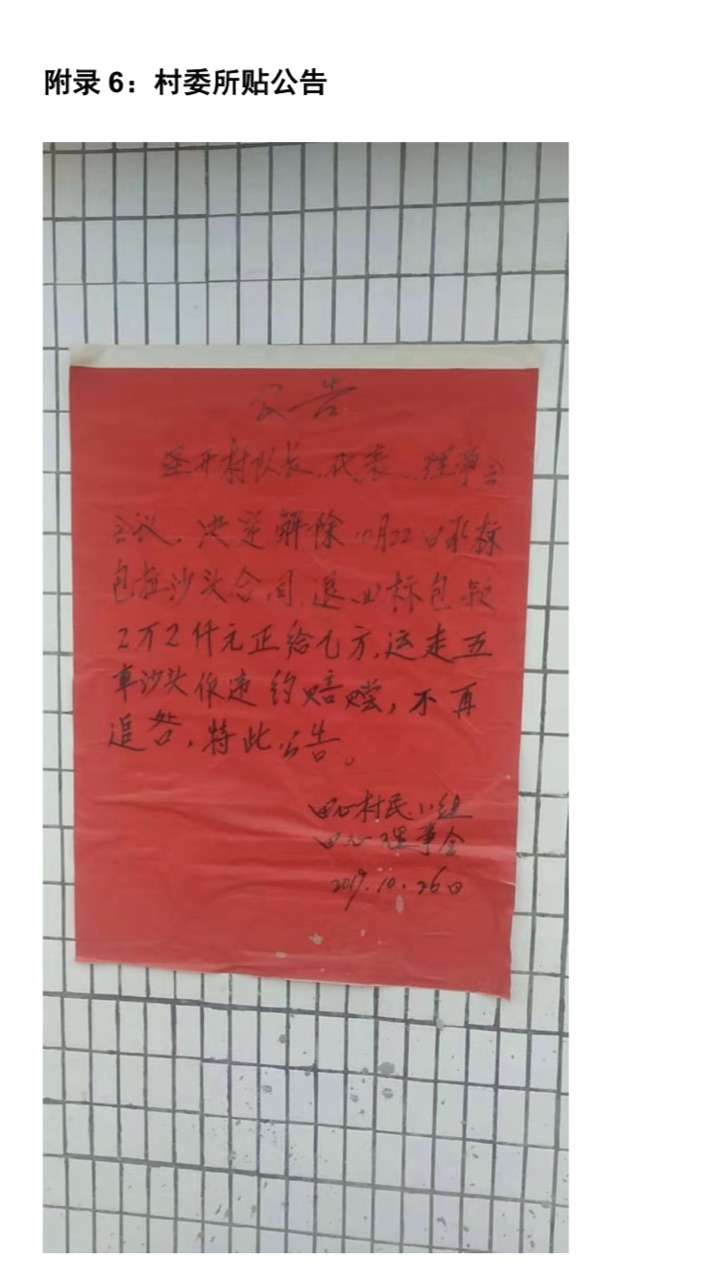 附录 6：村委所贴公告
公告
圣开村队长、代表、理事会
会议，决定解除10月22日投标
包拉沙头合同，退回标包款
2万2仟元正给乙方，运走五
车沙头作违约赔偿，不再
追咎，特此公告。
田心村民小组
田心理事会
2019.10.26日